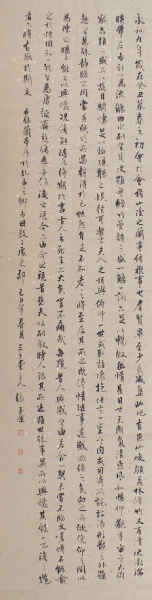 永和九年歲在癸丑暮春之初會于會稽山陰之蘭亭脩稧事也羣賢畢至少長咸集此地有崇山峻領茂林脩竹又有清流激湍
暎帶左右引以為流觴曲水列坐其次雖無絲竹管弦之盛一觴一詠亦足以暢敘幽情是日也天朗氣清惠風和暢仰觀宇宙之大俯
察品類之盛所以遊目騁懷足以極視聽之娛信可樂也夫人之相與俯仰一世或取諸懷抱悟言一室之內或因寄所託放浪形骸之外雖
趣舍萬殊靜躁不同當其欣於所遇暫得於己快然自足不知老之將至及其所之既惓情隨事遷感慨係之矣向之所欣俛仰之間以
為陳迹猶不能不以之興懷況脩短隨化終期於盡古人云死生亦大矣豈不痛哉每攬昔人興感之由若合一契未嘗不臨文嗟悼不能喻
之於懷固知一死生為虛誕齊彭殤為妄作後之視今亦由今之視昔悲夫故列敘時人錄其所述雖世殊事異所以興懷其致一也後之攬
者亦將有感於斯文